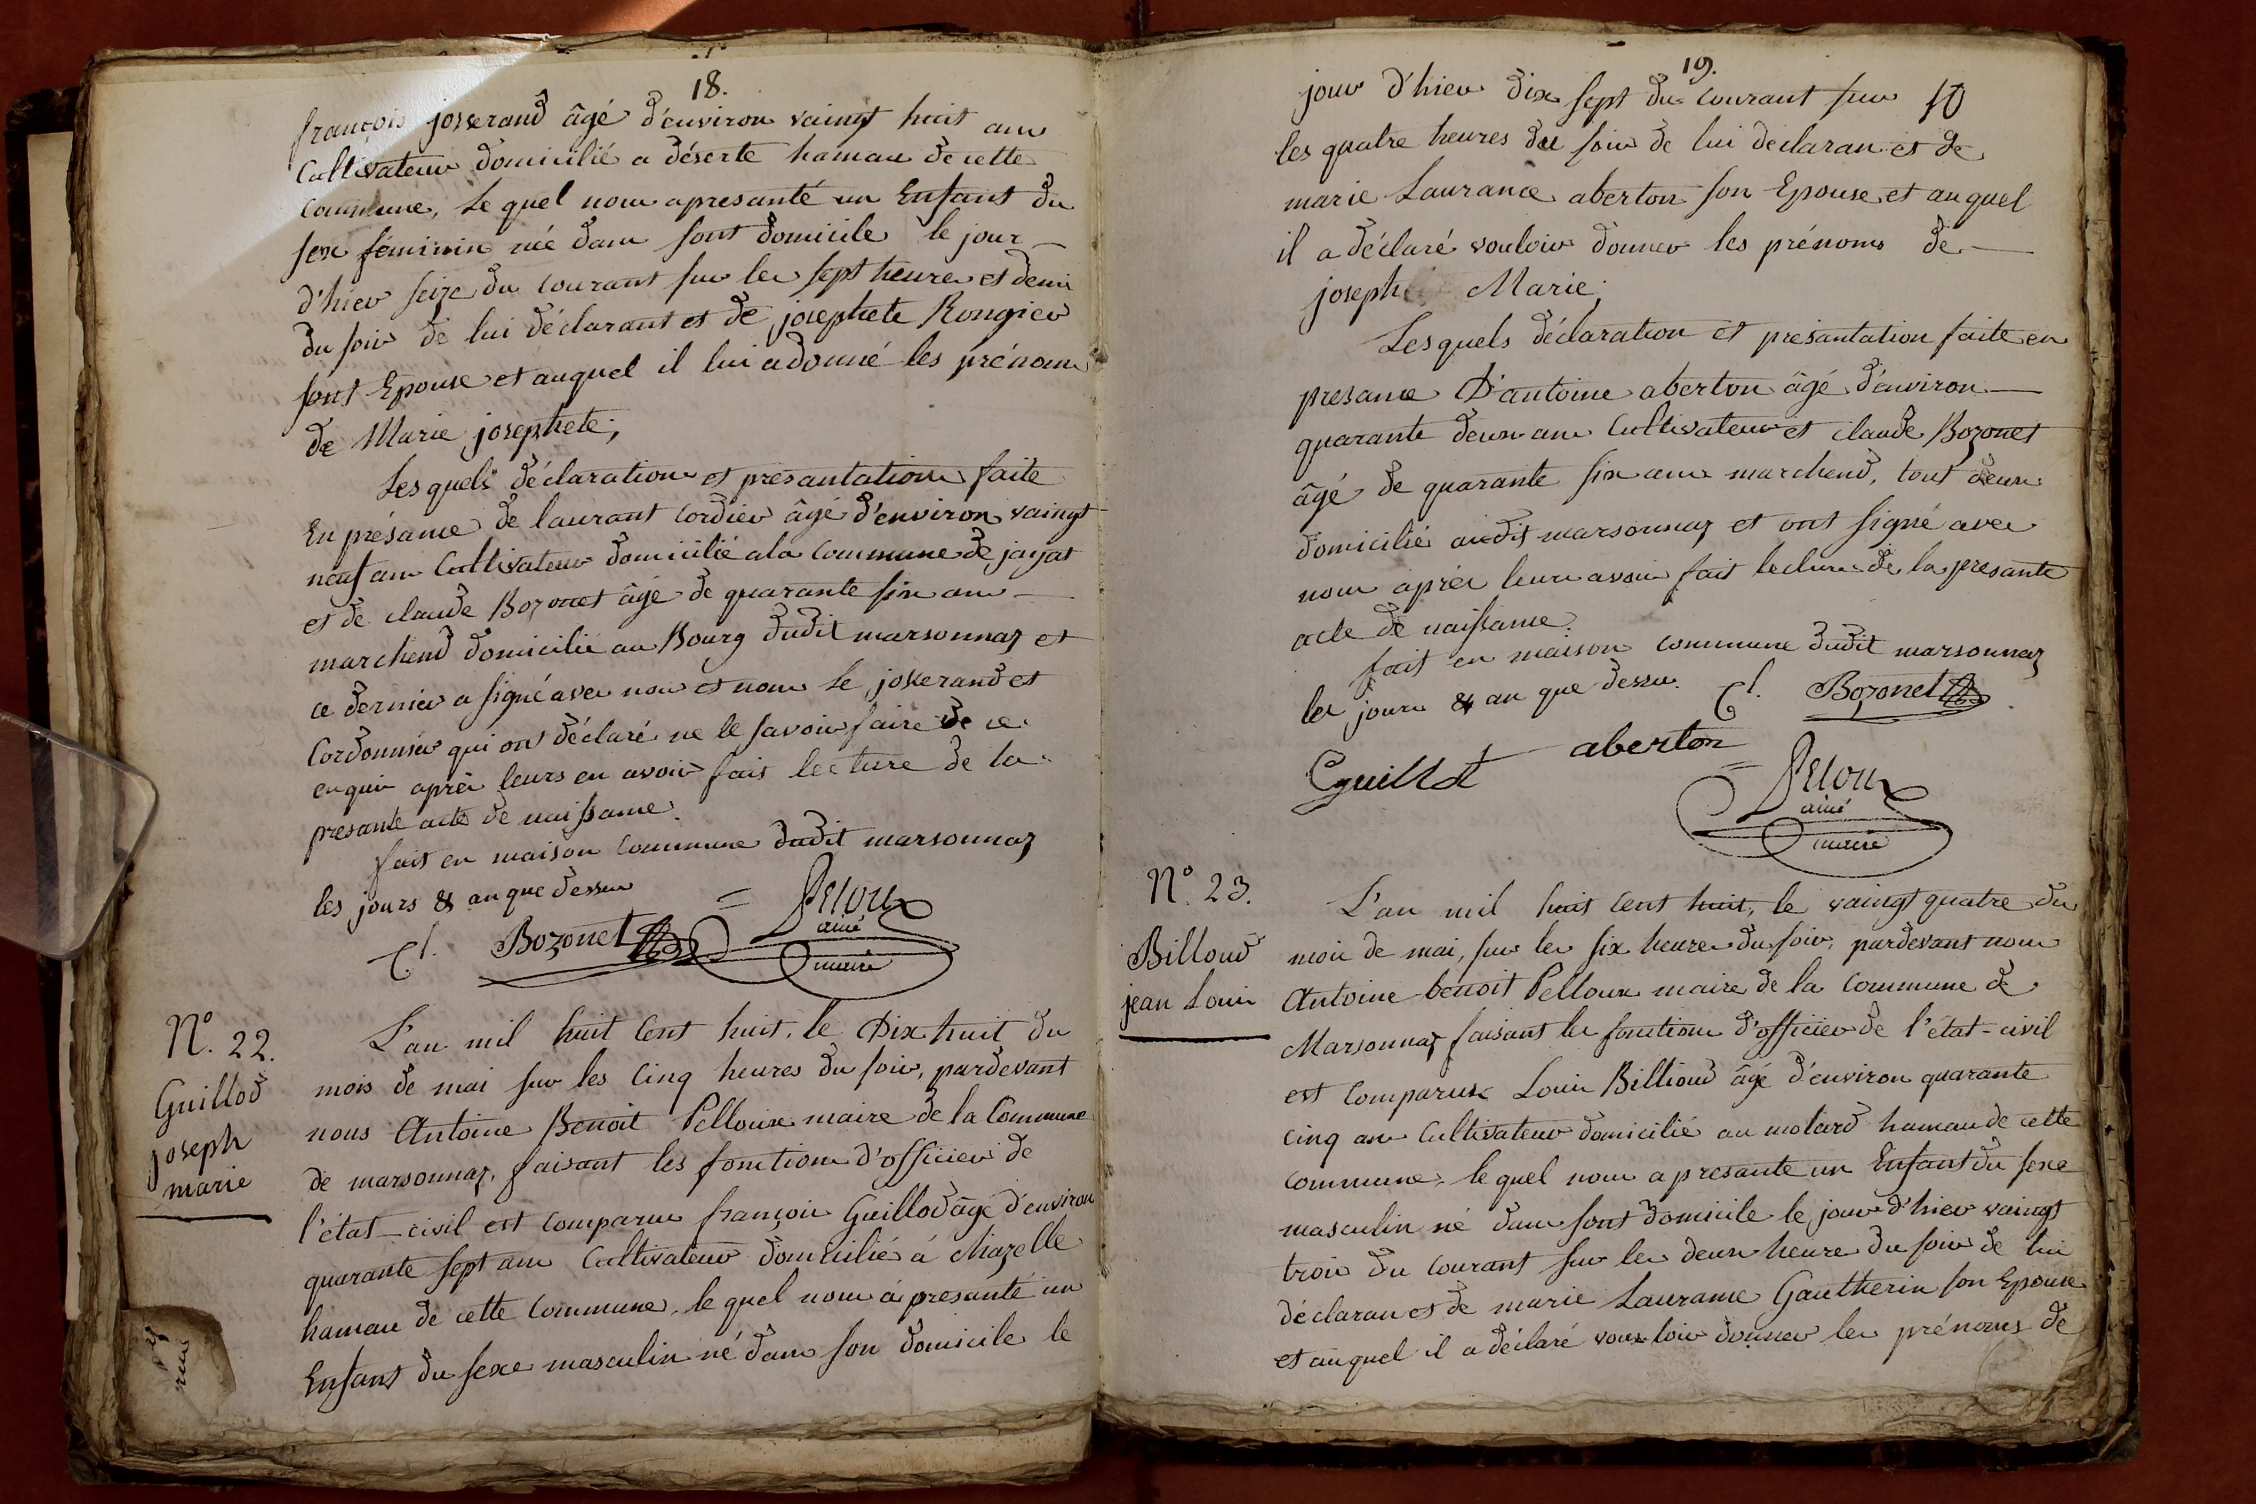 18.
françois josserand âgé d'environ vaingt huit ans
Cultivateur domicilié a déserte hamau de cette
Commune, le quel nous a presanté un Enfant du
sexe féminin né dans sont domicile le jour
d'hier seize du courant sur les sept heures et demi
du soir de lui déclarant et de josephete Rongier
sont Epouse et auquel il lui a donné les prénoms
de Marie josephete;
Les quels déclaration et présantation faite
En présance de laurant Cordier âgé d'environ vaingt
neuf ans Cultivateur domicilié a la Commune de jayat
et de claude Bozonet âgé de quarante six ans
marchend domicilié au Bourg dudit marsonnaz et
ce dernier a signé avec nous et nom le josserand et
Cordonnier qui ont déclaré ne le savoir faire de ce
enquis après leurs en avoir fait lecture de la
presante acte de naissance.
fait en maison Commune dudit marsonnaz
les jours & an que dessus
Cl. Bozonet
Peloux
ainé
maire
N.º 22.
Guillod
joseph
marie
L'an mil huit Cent huit, le Dix huit du
mois de mai sur les Cinq heures du soir, pardevant
nous Antoine Benoit Pelloux maire de la Commune
de marsonnaz, faisant les fonctions d'officier de
l'état-civil est Comparu françois Guillod âgé d'environ
quarante sept ans Cultivateur domicilié à Mazelle
hamau de cette Commune, le quel nous à presanté un
Enfant du sexe masculin né dans son domicile le
19.
10
jour d'hier dix sept du Courant sur
les quatre heures du soir de lui déclaran et de
marie Laurance aberton son Epouse et auquel
il a déclaré vouloir donner les prénoms de
joseph Marie;
Les quels déclaration et présantation faite en
presance D'antoine aberton âgé d'environ
quarante deux ans Cultivateur et claude Bozonet
âgé de quarante six ans marchend, tout deux
domicilié audit marsonnaz et ont signé avec
nous après leurs avoir fait lecture de la presante
acte de naissance.
fait en maison commune dudit marsonnaz
les jours & an que dessus. Cl. Bozonet
Cguillot aberton
Peloux
ainé
maire
N.º 23.
Billoud
jean Louis
L'an mil huit Cent huit, le vaingt quatre du
mois de mai, sur les six heures du soir, pardevant nous
Antoine benoit Pelloux maire de la Commune de
Marsonnaz faisant les fonctions d'officier de l'état-civil
est Comparux Louis Billioud âgé d'environ quarante
Cinq ans Cultivateur domicilié au molard hamau de cette
Commune, le quel nous a presanté un Enfant du sexe
masculin né dans sont domicile le jour d'hier vaingt
trois du Courant sur les deux heures du soir de lui
déclaran et de marie Laurance Gautherin son Epouse
et auquel il a déclaré vouloir donner les prénoms de